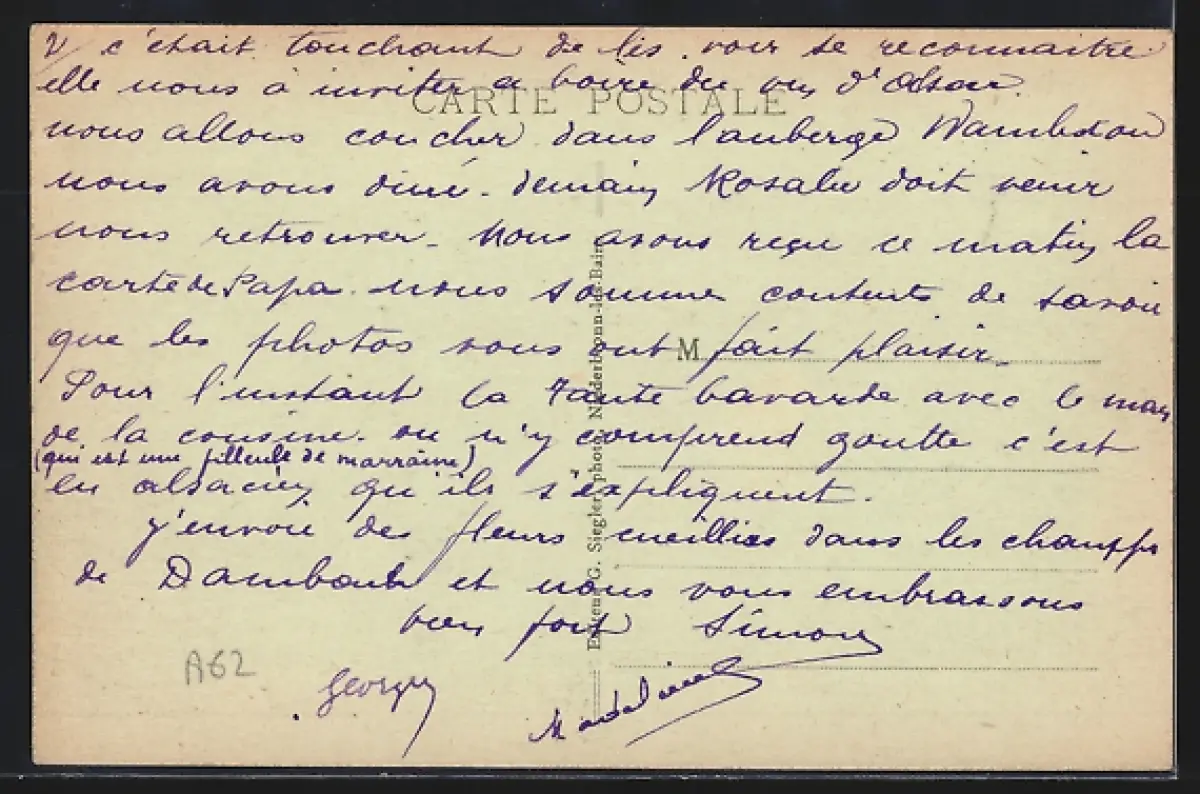 2/ c'était touchant de les voir se reconnaitre
elle nous à inviter a boire du vin d'Alsace.
CARTE POSTALE
nous allons coucher dans l'auberge
nous avons diné. demain Rosalie doit venir
nous retrouver. Nous avons reçu ce matin la
carte de Papa. nous somme contents de savoir
que les photos vous ont fait plaisir.
M
Pour l'instant la Tante bavarde avec le mari
de la cousine. on n'y comprend goutte c'est
(qui est une filleule de marraine)
en alsacien qu'ils s'expliquent.
j'envoie des fleurs cueillies dans les champs
de Dambach et nous vous embrassons
bien fort Simone
Georges
Madeleine
A62
G. Siegler, phot., Niederbronn-les-Bains